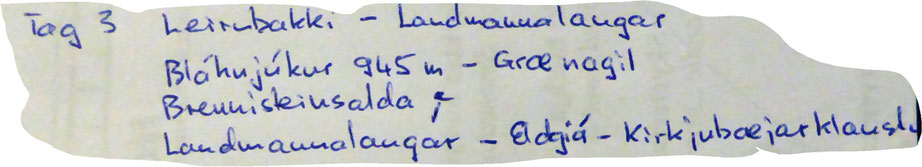 Tag 3 Leirubakki - Landmannalaugar
Bláhnjúkur 945 m - Grænagil
Brenniskinsalda
Landmannalaugar - Eldgjá - Kirkjubaejarklaustu